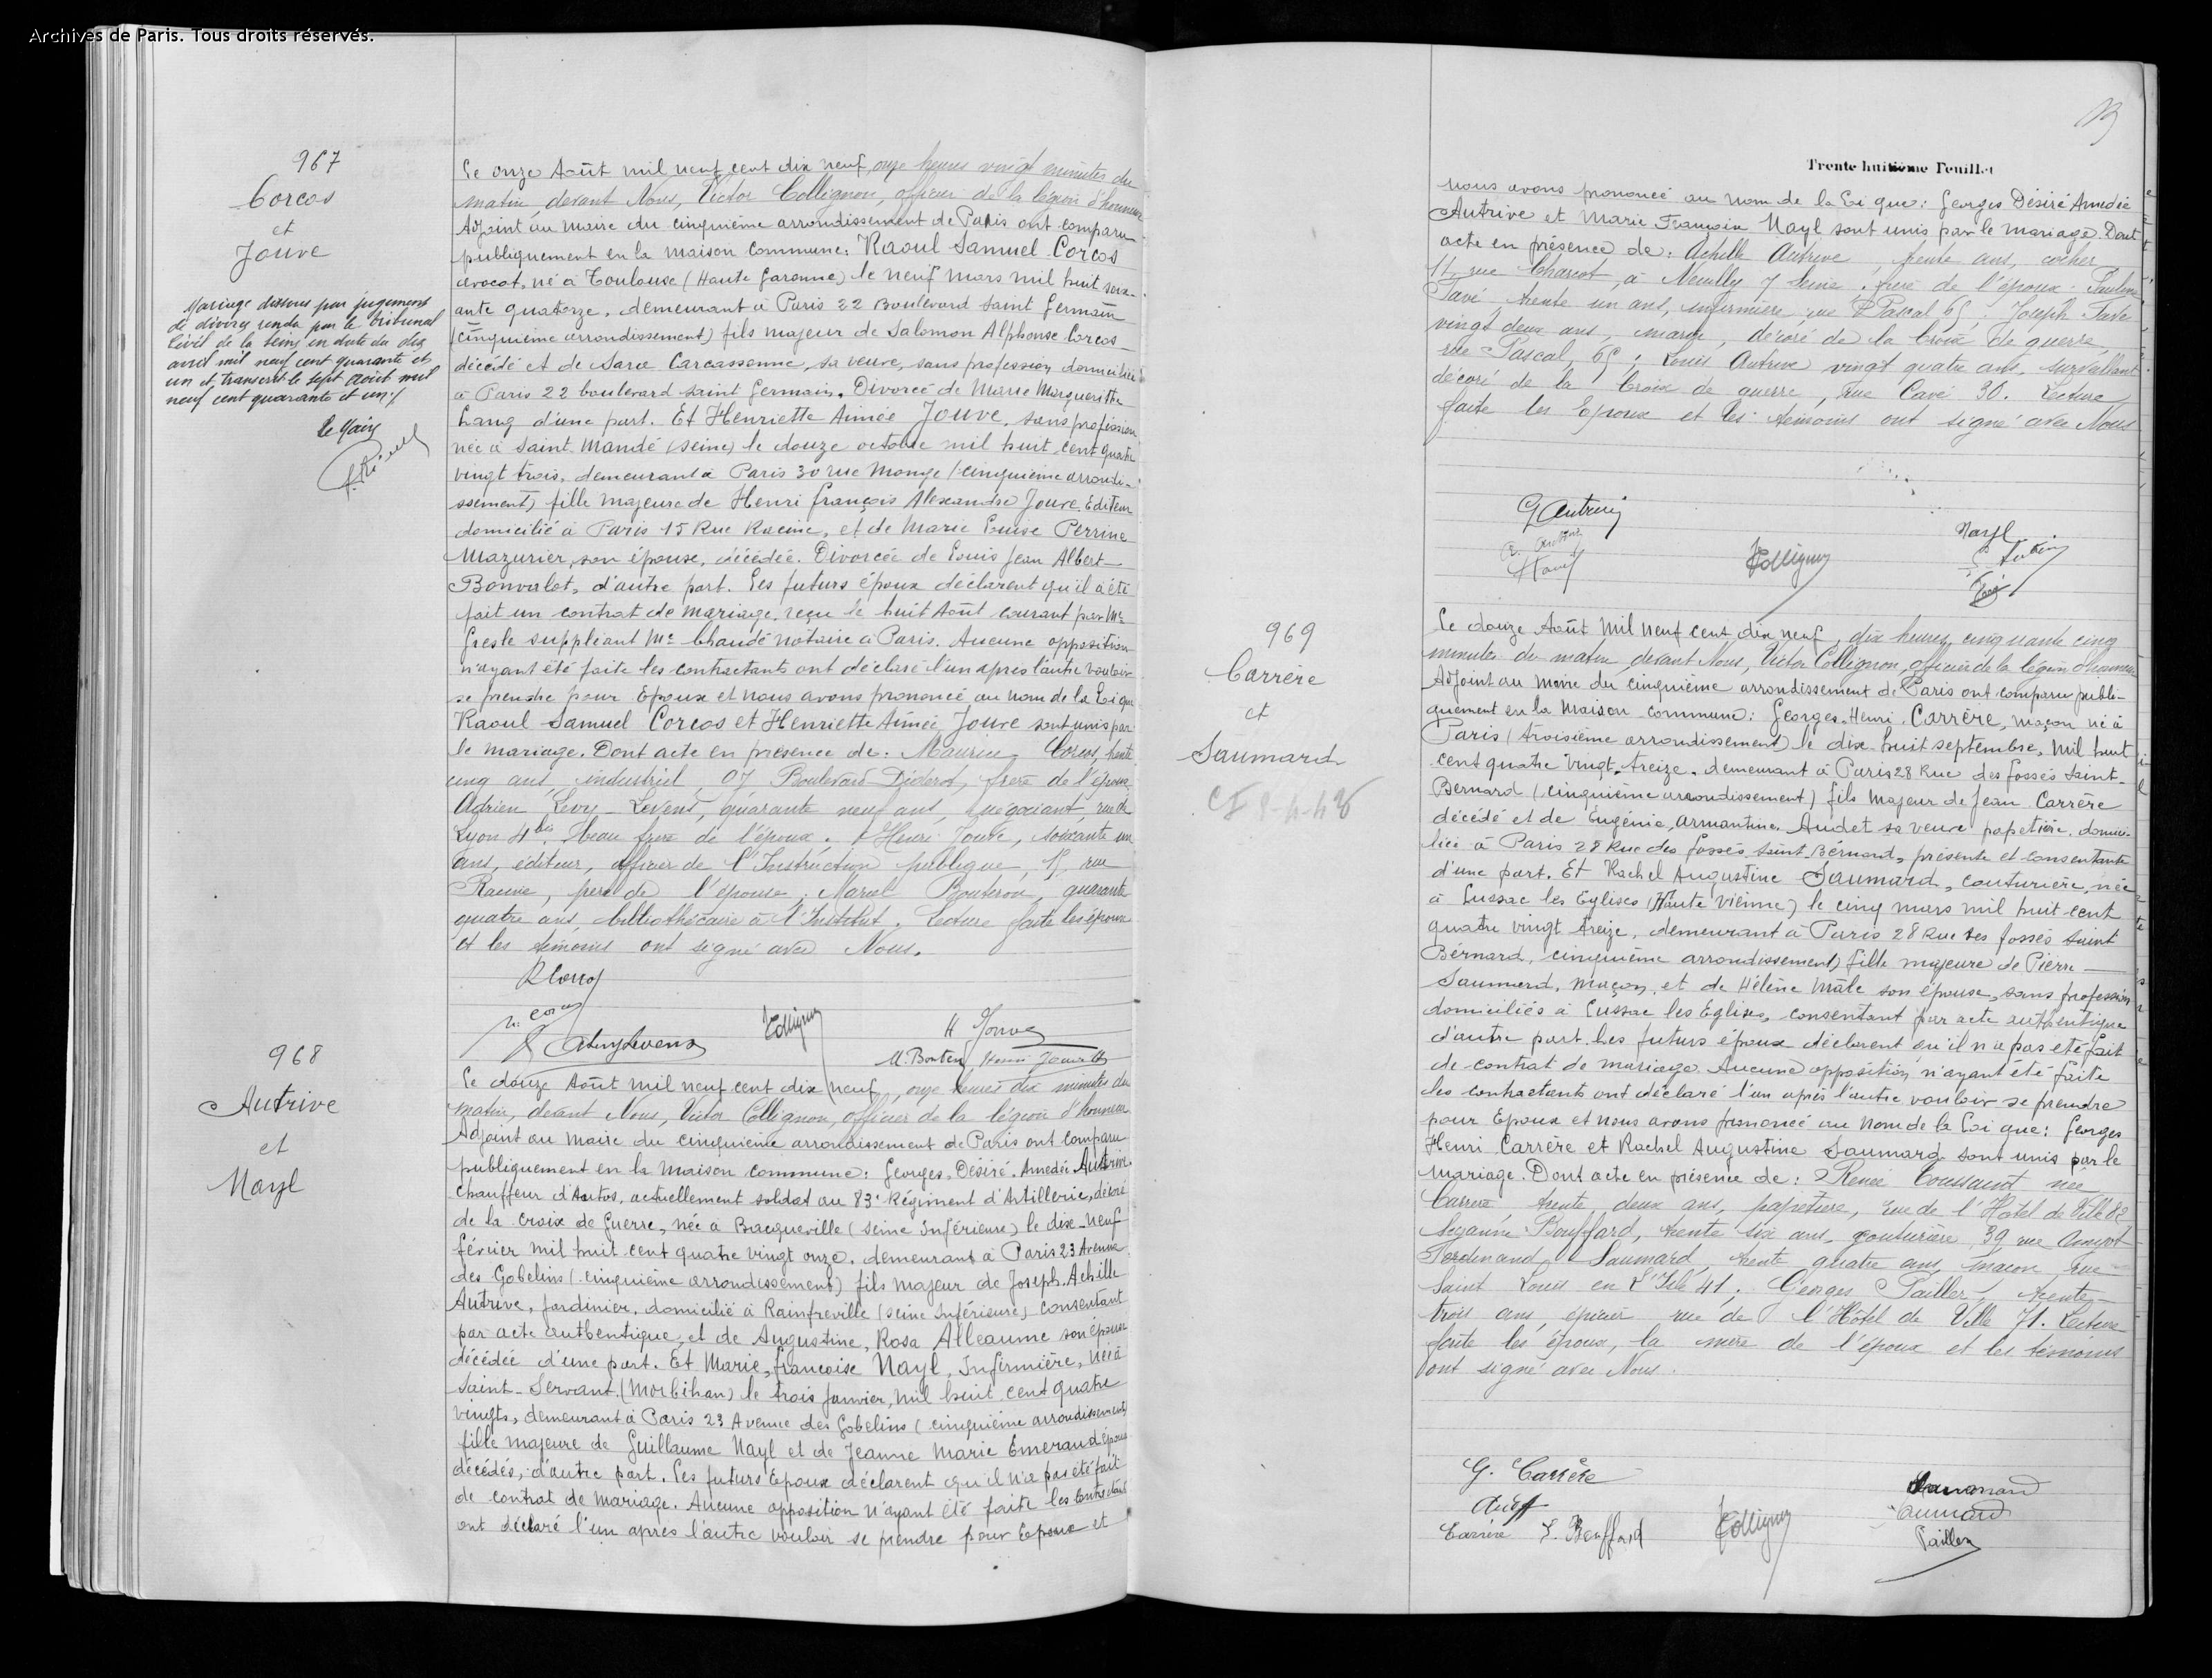 Archives de Paris. Tous droits réservés.
967
Corcos
et
Jouve
Mariage dissous par jugement
de divorce rendu par le tribunal
civil de la Seine en date du dix
avril mil neuf cent quarante et
un et transcrit le sept Août mil
neuf cent quarante et un
le Maire
Le onze Août mil neuf cent dix neuf, onze heures vingt minutes du
matin, devant Nous, Victor Collignon, officier de la légion d'honneur
Adjoint au maire du cinquième arrondissement de Paris ont comparu
publiquement en la maison commune: Raoul Samuel Corcos
avocat, né à Toulouse (Haute Garonne) le neuf mars mil huit soix-
ante quatorze, demeurant à Paris 22 Boulevard Saint Germain
(cinquième arrondissement) fils majeur de Salomon Alphonse Corcos
décédé et de Sara Carcassonne, sa veuve, sans profession domiciliée
à Paris 22 boulevard saint Germain. Divorcé de Marie Marguerithe
Lang d'une part. Et Henriette Aimée Jouve, sans profession
née à Saint Mandé (seine) le douze octobre mil huit cent quatre
vingt trois, demeurant à Paris 30 rue Monge (cinquième arrondi-
ssement) fille majeure de Henri François Alexandre Jouve, Editeur
domicilié à Paris 15 Rue Racine, et de Marie Louise Perrine
Mazurier, son épouse, décédée. Divorcée de Louis Jean Albert
Bonvalot, d'autre part. Les futurs époux déclarent qu'il a été
fait un contrat de mariage, reçu le huit Août courant par Me
Gresle suppléant Me Chaudé notaire à Paris. Aucune opposition
n'ayant été faite les contractants ont déclaré l'un après l'autre vouloir
se prendre pour Epoux et nous avons prononcé au nom de la Loi que
Raoul Samuel Corcos et Henriette Aimée Jouve sont unis par
le mariage. Dont acte en présence de: Maurice Corcos, trente
cinq ans, industriel, Boulevard Diderot, frère de l'époux
Adrien Levy-Levens, quarante neuf ans, négociant, rue de
Lyon 4 bis, beau frère de l'époux; Henri Jouve, soixante un
ans, éditeur, officier de l'Instruction publique, 15, rue
Racine, père de l'épouse; Marcel Bouteron, quarante
quatre ans, bibliothécaire à l'Institut. Lecture faite les époux
et les témoins ont signé avec Nous.
R Corcos
M. Corcos
Collignon
H Jouve
ALevyLevens
M. Bouteron Henri Jouve
968
Autrive
et
Nayl
Le douze Août mil neuf cent dix neuf, onze heures dix minutes du
matin, devant Nous, Victor Collignon, officier de la légion d'honneur
Adjoint au Maire du cinquième arrondissement de Paris ont comparu
publiquement en la maison commune: Georges, Désiré, Amedée Autrive
Chauffeur d'Autos, actuellement soldat au 83e Régiment d'Artillerie, décoré
de la croix de Guerre, née à Bacqueville (Seine Inférieure) le dix-neuf
février mil huit cent quatre vingt onze, demeurant à Paris 23 Avenue
des Gobelins (cinquième arrondissement) fils majeur de Joseph Achille
Autrive, Jardinier, domicilié à Rainfreville (Seine Inférieure) consentant
par acte authentique, et de Augustine, Rosa Alleaume son épouse
décédée d'une part. Et Marie, françoise Nayl, Infirmière, née à
Saint-Servant (Morbihan) le trois janvier, mil huit cent quatre
vingts, demeurant à Paris 23 Avenue des Gobelins (cinquième arrondissement)
fille majeure de Guillaume Nayl et de Jeanne Marie Emeraud épouse
décédés, d'autre part. Les futurs Epoux déclarent qu'il n'a pas été fait
de contrat de mariage. Aucune opposition n'ayant été faite les contractants
ont déclaré l'un après l'autre vouloir se prendre pour Epoux et
Trente huitième Feuillet
nous avons prononcé au nom de la Loi que: Georges Désiré Amedée
Autrive et Marie Françoise Nayl sont unis par le mariage. Dont
acte en présence de: Achille Autrive, trente ans, cocher,
11, rue Charcot, à Neuilly s/ Seine, frère de l'époux; Pauline
Favé, trente un ans, infirmière, rue Pascal 65; Joseph Favé
vingt deux ans, marin, décoré de la Croix de guerre,
rue Pascal, 65; Louis Autrive vingt quatre ans, surveillant
décoré de la Croix de guerre, rue Cavé 30. Lecture
faite les Epoux et les témoins ont signé avec Nous
G Autrive
Nayl
Collignon
969
Carrère
et
Saumard
Le douze Août Mil Neuf cent dix neuf, dix heures cinquante cinq
minutes du matin, devant Nous, Victor Collignon, officier de la légion d'honneur
Adjoint au Maire du cinquième arrondissement de Paris ont comparu publi-
quement en la Maison commune: Georges, Henri Carrère, maçon né à
Paris (troisième arrondissement) le dix-huit septembre, mil huit
cent quatre vingt-treize, demeurant à Paris 28 Rue des fossés Saint-
Bernard (cinquième arrondissement) fils majeur de Jean Carrère
décédé et de Eugénie, Armantine, Audet sa veuve papetière, domici-
liée à Paris 28 Rue des fossés Saint Bernard, présente et consentante
d'une part. Et Rachel Augustine Saumard, couturière, née
à Lussac les Eglises (Haute Vienne) le cinq mars mil huit cent
quatre vingt treize, demeurant à Paris 28 Rue des fossés Saint
Bernard, cinquième arrondissement) fille majeure de Pierre
Saumard, maçon, et de Hélène Mâle son épouse, sans profession
domiciliés à Lussac les Eglises, consentant par acte authentique
d'autre part. Les futurs époux déclarent qu'il n'a pas été fait
de contrat de mariage. Aucune opposition n'ayant été faite
les contractants ont déclaré l'un après l'autre vouloir se prendre
pour Epoux et nous avons prononcé au Nom de la Loi que: Georges
Henri Carrère et Rachel Augustine Saumard sont unis par le
mariage. Dont acte en présence de: Renée Toussaint née
Carrère, trente deux ans, papetière, rue de l'Hôtel de Ville 82
Suzanne Bouffard, trente six ans, couturière, 39 rue Amyot
Ferdinand Saumard, trente quatre ans, maçon, rue
Saint Louis en l'Isle 41; Georges Pailler, trente
trois ans, épicier rue de l'Hôtel de Ville 71. Lecture
faite les époux, la mère de l'époux et les témoins
ont signé avec Nous.
G. Carrère
Saumard
Carrère S. Bouffard
Collignon
Saumard
Pailler